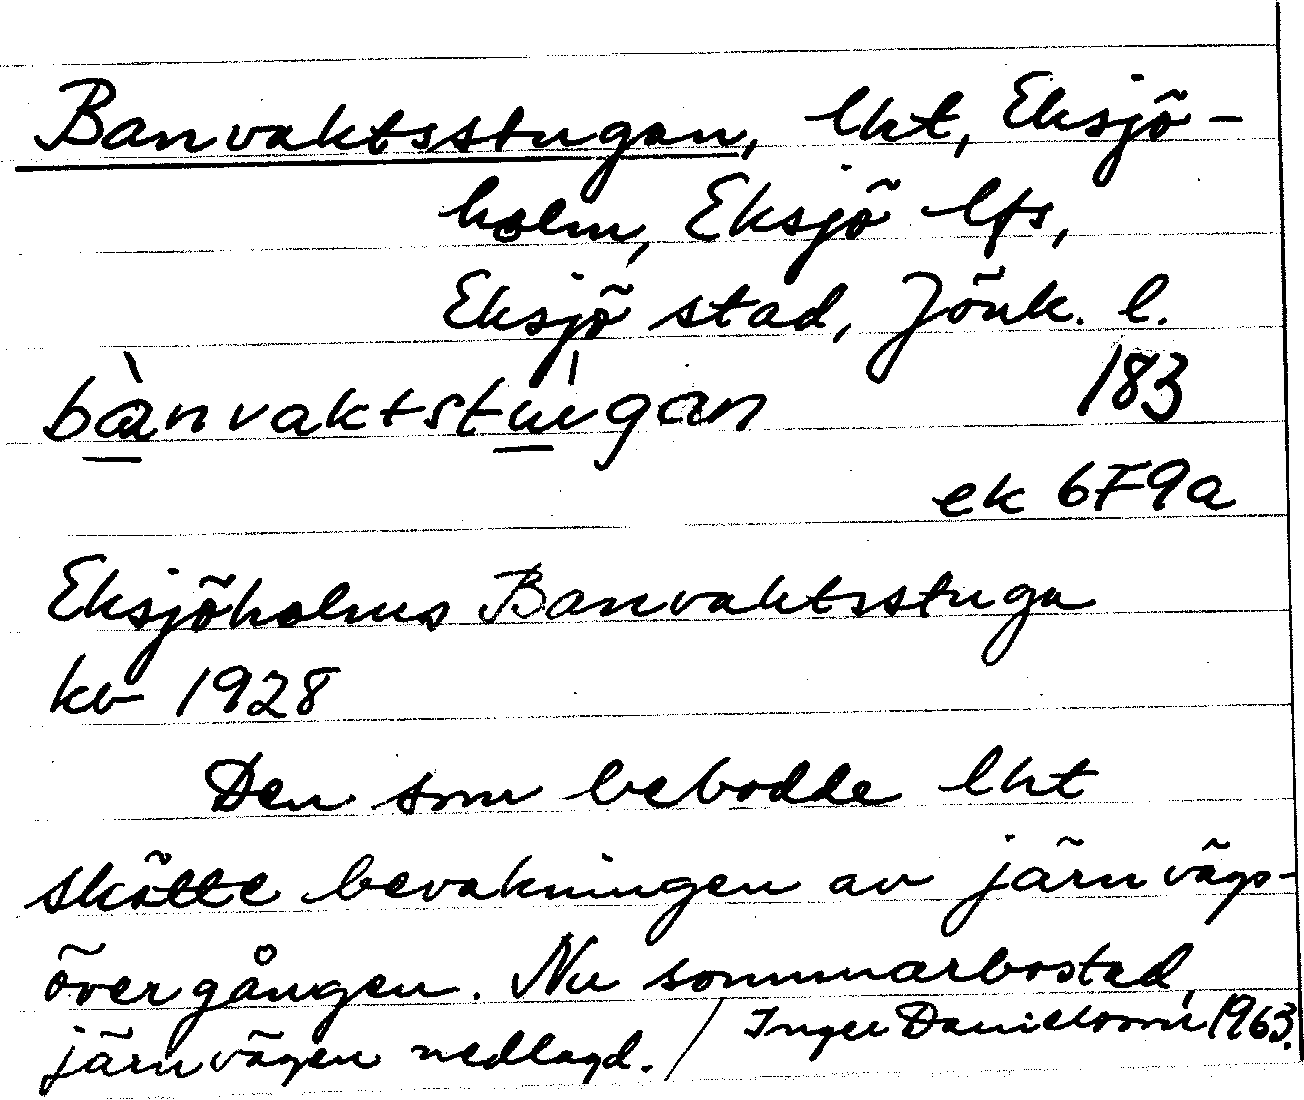 Banvaktsstugan, lht, Eksjö-
holm, Eksjö lfs,
Eksjö stad, Jönk. l.
bànvaktstùgan 183
ek 6F9a
Eksjöholms Banvaktsstuga
kb 1928
Den som bebodde lht
skötte bevakningen av järnvägs-
övergången. Nu sommarbostad,
järnvägen nedlagd. / Inger Danielsson 1963.